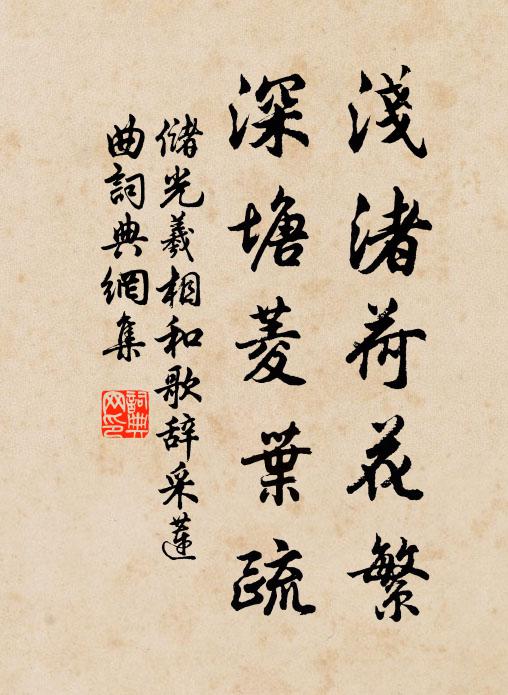 淺渚荷花繁
深塘菱葉疏
儲光羲相和歌辞采蓮
曲詞典網集
詞典网印